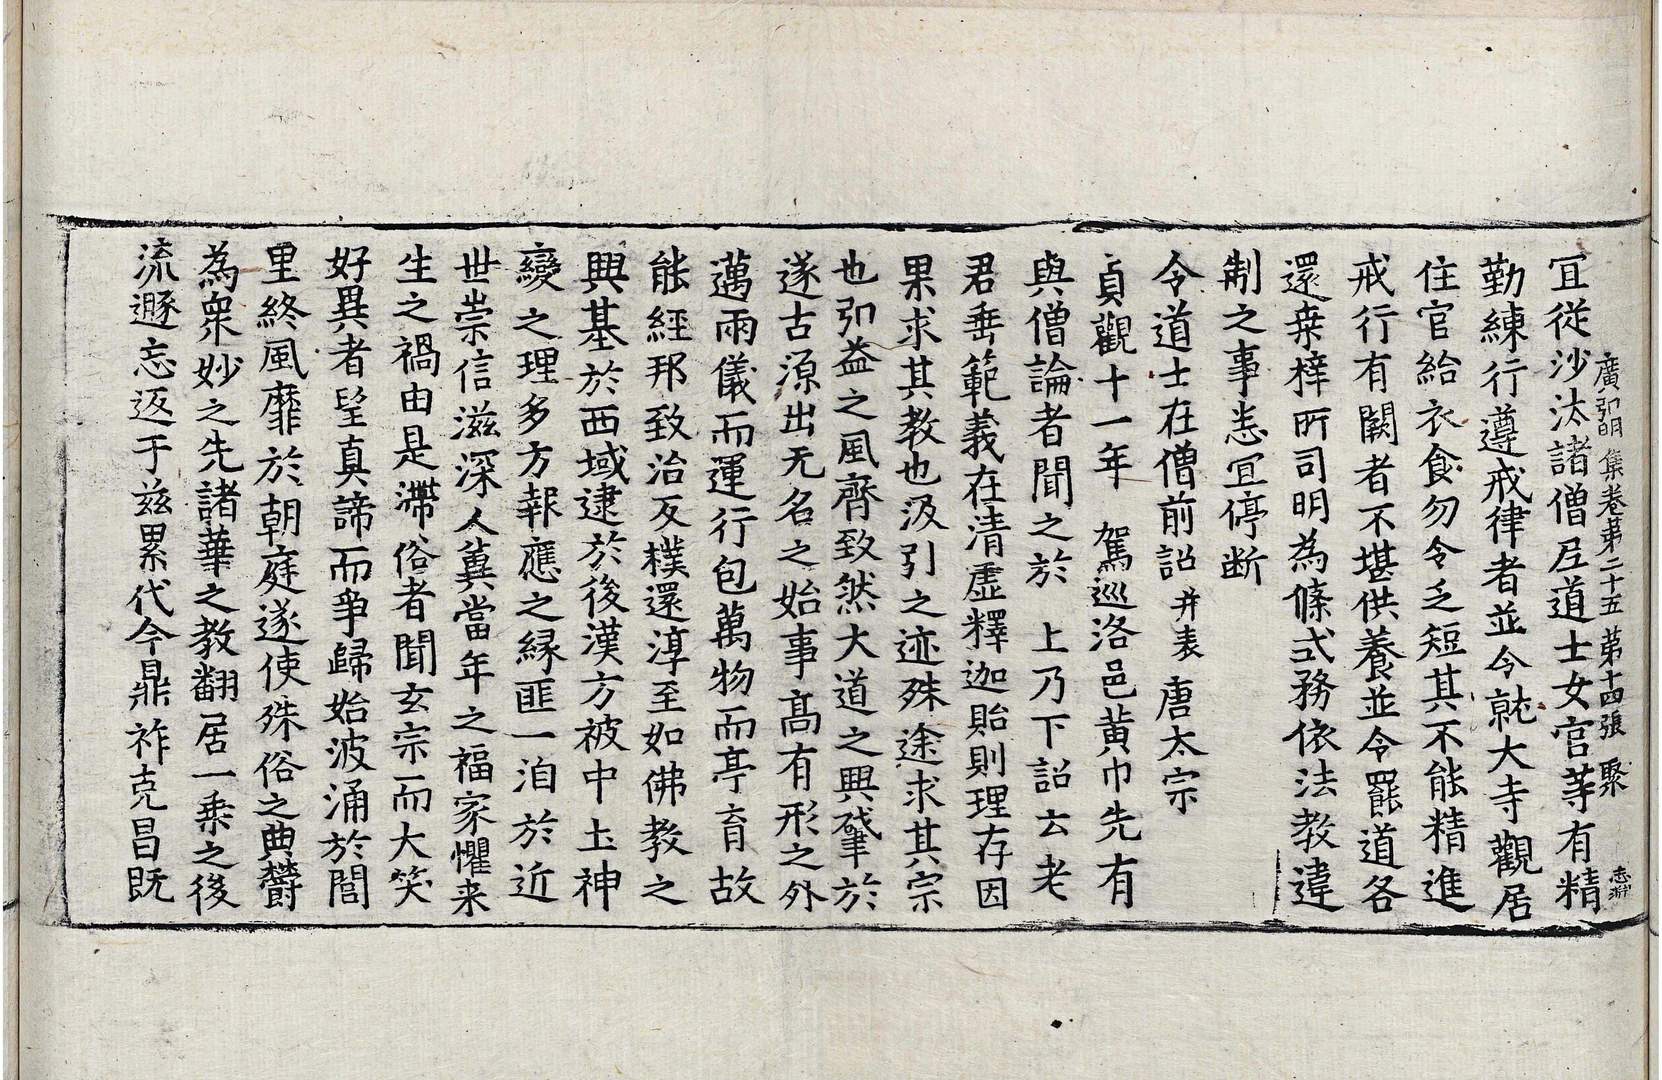 廣弘明集卷苐二十五 苐十四張 聚
冝從沙汰諸僧尼道士女官䓁有精
勤練行遵戒律者並令就大寺觀居
住官給衣食勿令乏短其不能精進
戒行有闕者不堪供養並令罷道各
還桒梓所司明為條式務依法教違
制之事悉冝停断
令道士在僧前詔并表 唐太宗
貞觀十一年 駕巡洛邑黃巾先有
與僧論者聞之於 上乃下詔云老
君垂範義在清虛釋迦貽則理存因
果求其教也汲引之迹殊途求其宗
也弘益之風齊致然大道之興肇於
遂古源出无名之始事髙有形之外
邁兩儀而運行包萬物而亭育故
能經邦致治反樸還淳至如佛教之
興基於西域逮於後漢方被中土神
變之理多方報應之縁匪一洎於近
世崇信滋深人冀當年之福家懼来
生之禍由是滯俗者聞玄宗而大笑
好異者望真諦而爭歸始波涌於閭
里終風靡於朝庭遂使殊俗之典欝
為衆妙之先諸華之教翻居一乗之後
流遯忘返于兹累代今鼎祚克昌既